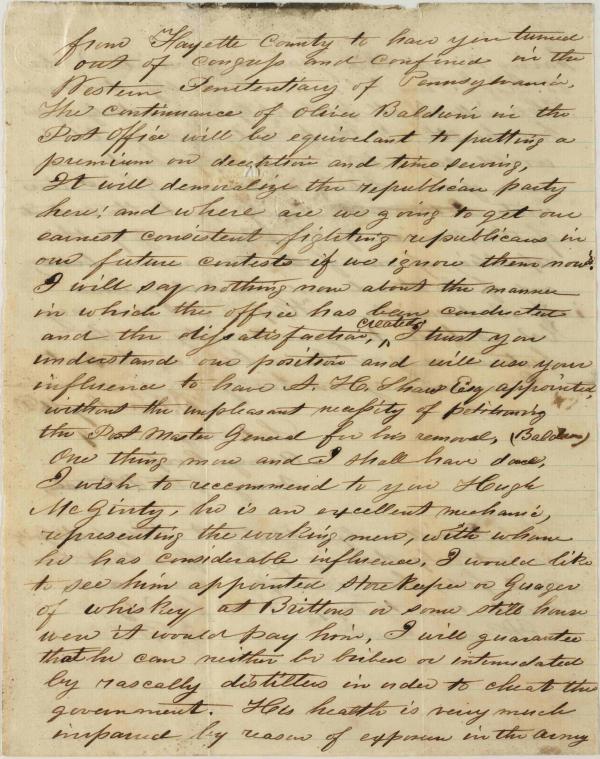 from Fayette County to have you turned
out of Congress and confined in the
Western Penetentiary of Pennsylvania.
The continuance of Oliver Baldwin in the
Post Office will be equivelant to putting a
premium on deception and time serving.
It will demoralize the republican party
here! and where are we going to get our
earnest consistent fighting republicans in
our future contests if we ignore them now?
I will say nothing now about the manner
in which the office has been conducted
and the dissatisfaction, created I trust you
understand our position and will use your
influence to have A. H. Shaw Esq appointed,
without the unpleasant necessity of petitioning
the Post Master General for his removal, (Baldwin)
One thing more and I shall have done,
I wish to recommend to you Hugh
McGinty, he is an excellent mechanic,
representing the working men, with whom
he has considerable influence, I would like
to see him appointed store keeper or Guager
of whiskey at Brittons or some still house
were it would pay him, I will guarantee
that he can neither be bribed or intimedated
by rascally distillers in order to cheat the
government. His health is very much
impared by reason of exposure in the army